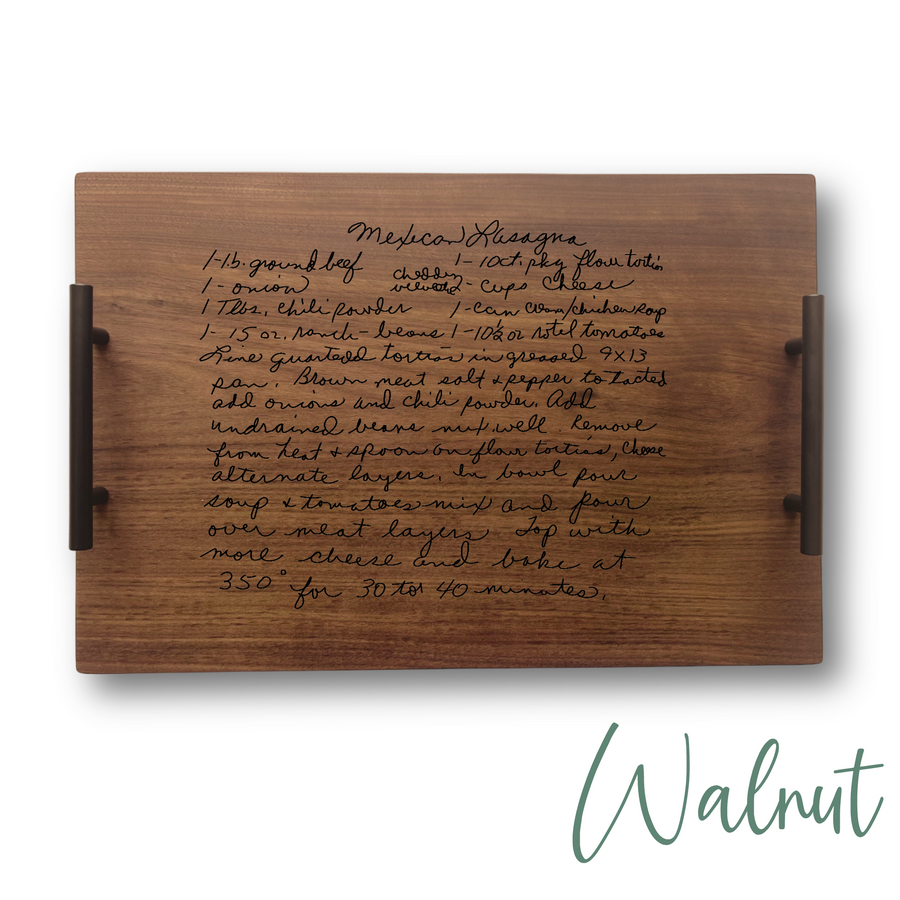 Mexican Lasagna
1-lb. ground beef 1-10ct. pkg flour tortias
1-onion cheddar velveeta 2-cups Cheese
1 Tlbs. chili powder 1-can cream/chicken soup
1-15 oz. ranch-beans 1-10½ oz rotel tomatoes
Line quartedd tortias in greased 9x13
pan. Brown meat salt & pepper to tasted
add onions and chili powder. Add
undrained beans mix well. Remove
from heat & spoon on flour tortias, cheese
alternate layers. In bowl pour
soup & tomatoes mix and pour
over meat layers Top with
more cheese and bake at
350° for 30 to 40 minutes.
Walnut